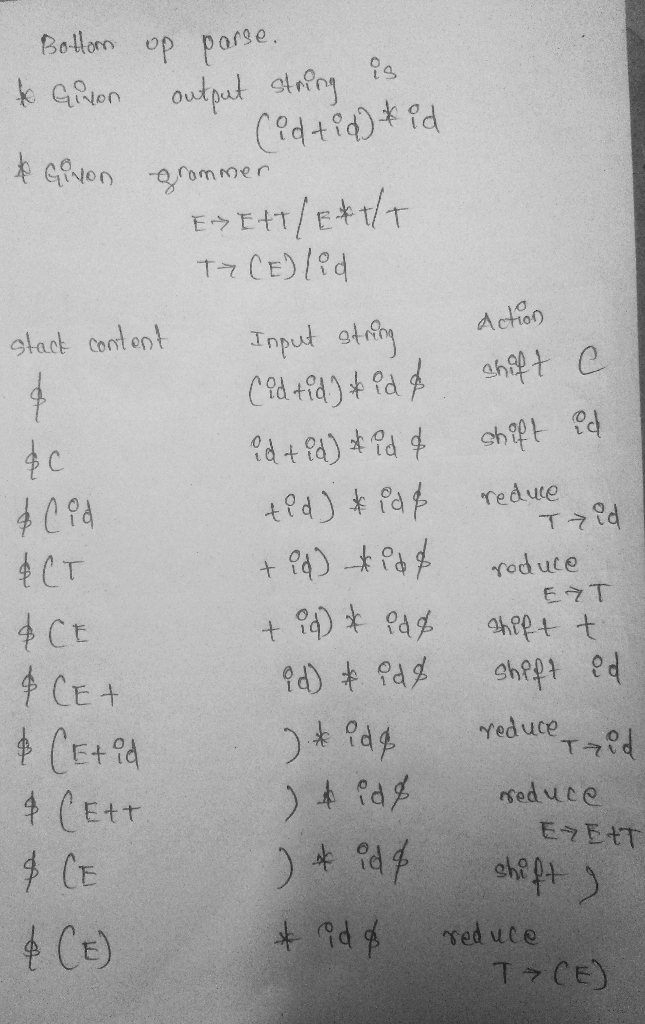 Bottom op parse.
* Given output string is
(id+id)*id
* Given grommer
E→E+T/E*T/T
T→(E)/id
stack content Input string Action
$ (id+id)*id $ shift (
$( id+id)*id $ shift id
$(id +id)*id$ reduce T→id
$(T +id)*id$ reduce E→T
$(E +id)*id$ shift +
$(E+ id)*id$ shift id
$(E+id )*id$ reduce T→id
$(E+T )*id$ reduce E→E+T
$(E )*id$ shift )
$(E) *id$ reduce T→(E)